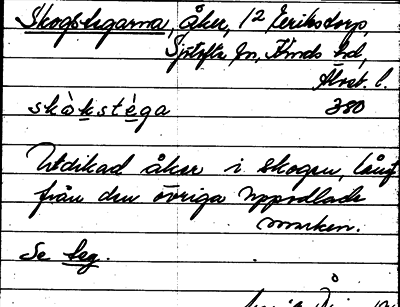 Skogstegarna, åker, 12 Eriksdorp,
Sjötofta sn, Kinds hd,
Älvsb. l.
skòkstèga 380
Utdikad åker i skogen, långt
från den övriga uppodlade
marken.
Se teg.